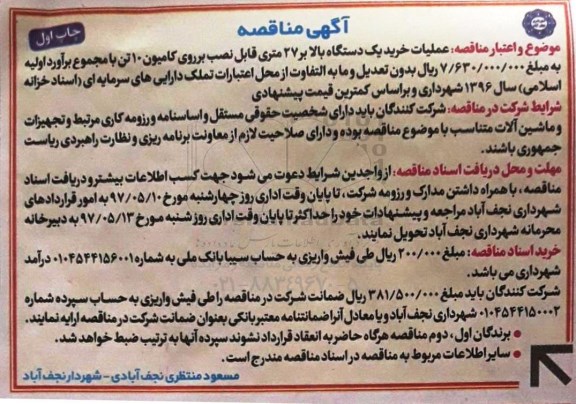 آگهی مناقصه
چاپ اول
موضوع و اعتبار مناقصه: عملیات خرید یک دستگاه بالابر ۲۷ متری قابل نصب بر روی کامیون ۱۰ تن با مجموع برآورد اولیه
به مبلغ ۷/۶۳۰/۰۰۰/۰۰۰ ریال بدون تعدیل و ما به التفاوت از محل اعتبارات تملک دارایی های سرمایه ای (اسناد خزانه
اسلامی) سال ۱۳۹۶ شهرداری و براساس کمترین قیمت پیشنهادی
شرایط شرکت در مناقصه: شرکت کنندگان باید دارای شخصیت حقوقی مستقل و اساسنامه و رزومه کاری مرتبط و تجهیزات
و ماشین آلات متناسب با موضوع مناقصه بوده و دارای صلاحیت لازم از معاونت برنامه ریزی و نظارت راهبردی ریاست
جمهوری باشند.
مهلت و محل دریافت اسناد مناقصه: از واجدین شرایط دعوت می شود جهت کسب اطلاعات بیشتر و دریافت اسناد
مناقصه، با همراه داشتن مدارک و رزومه شرکت، تا پایان وقت اداری روز چهارشنبه مورخ ۹۷/۰۵/۱۰ به امور قراردادهای
شهرداری نجف آباد مراجعه و پیشنهادات خود را حداکثر تا پایان وقت اداری روز شنبه مورخ ۹۷/۰۵/۱۳ به دبیرخانه
محرمانه شهرداری نجف آباد تحویل نمایند.
خرید اسناد مناقصه: مبلغ ۲۰۰/۰۰۰ ریال طی فیش واریزی به حساب سیبا بانک ملی به شماره ۰۱۰۴۵۴۴۱۵۶۰۰۱ درآمد
شهرداری می باشد.
شرکت کنندگان باید مبلغ ۳۸۱/۵۰۰/۰۰۰ ریال ضمانت شرکت در مناقصه را طی فیش واریزی به حساب سپرده شماره
۰۱۰۴۵۴۴۱۵۰۰۰۲ شهرداری نجف آباد و یا معادل آنرا ضمانتنامه معتبر بانکی بعنوان ضمانت شرکت در مناقصه ارایه نمایند.
• برندگان اول، دوم مناقصه هرگاه حاضر به انعقاد قرارداد نشوند سپرده آنها به ترتیب ضبط خواهد شد.
• سایر اطلاعات مربوط به مناقصه در اسناد مناقصه مندرج است.
مسعود منتظری نجف آبادی - شهردار نجف آباد